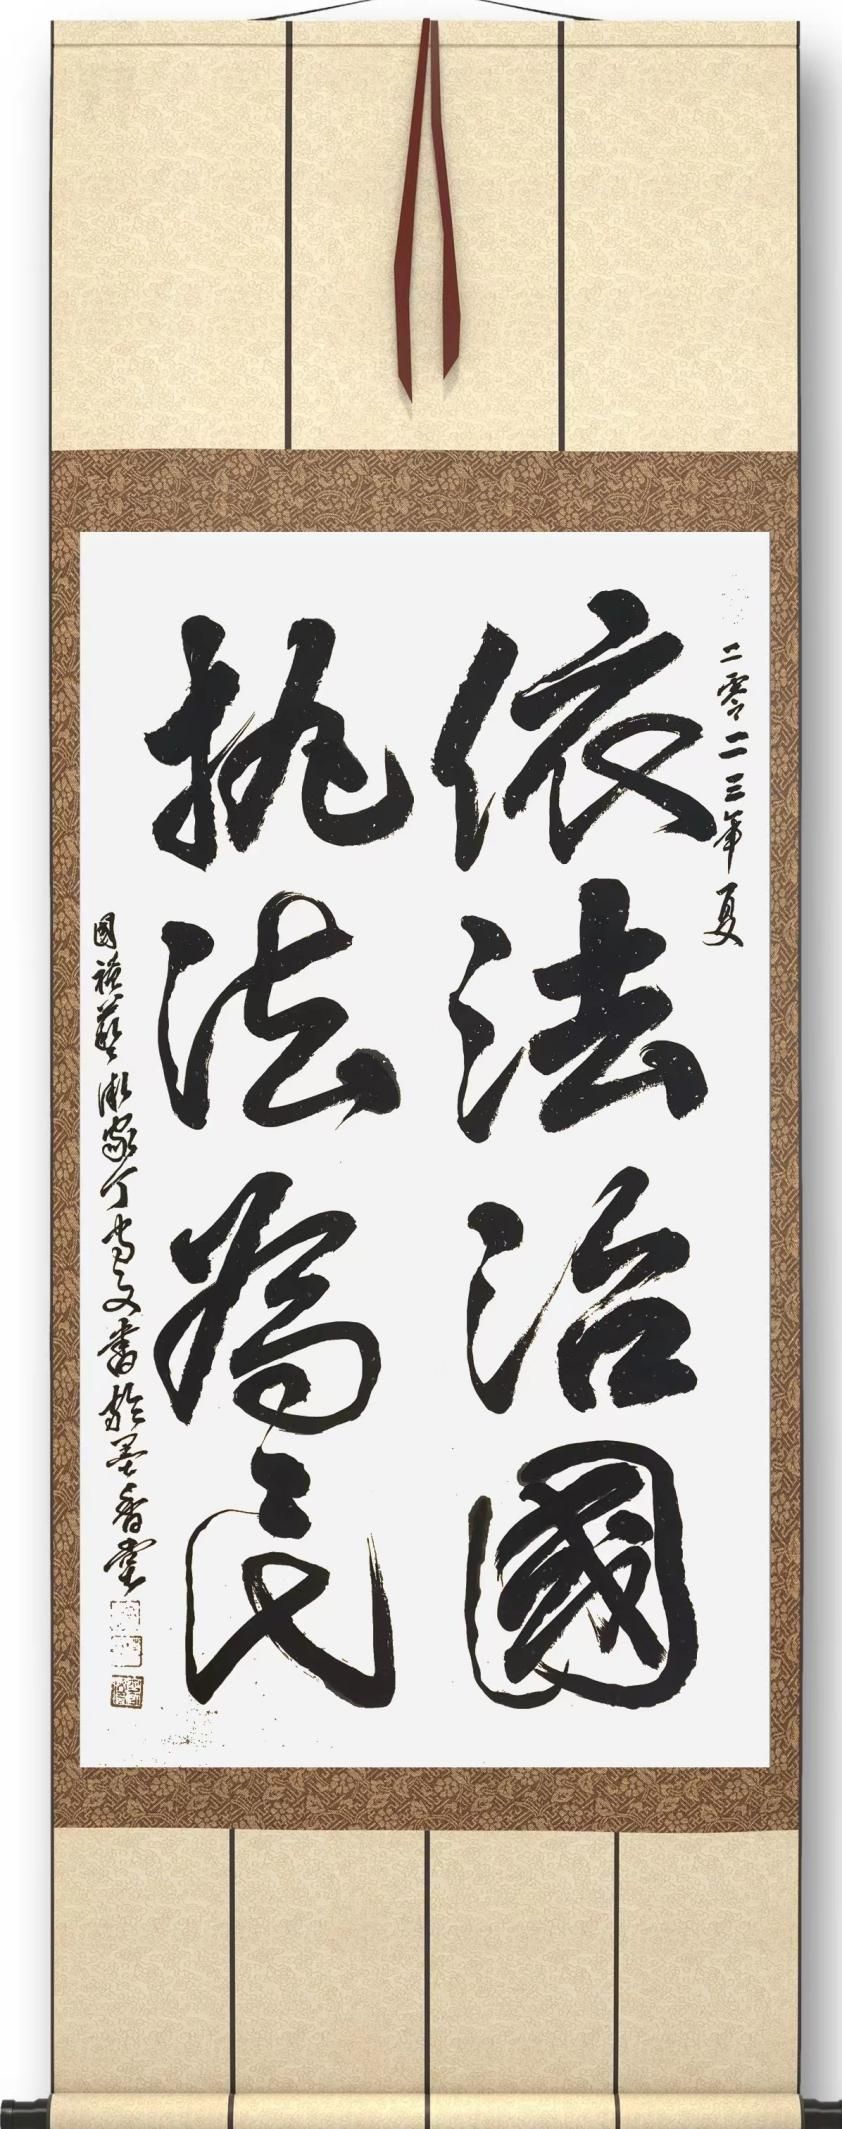 二零二三年夏
依法治國
执法為民
國禮藝術家丁尚文書於墨香堂